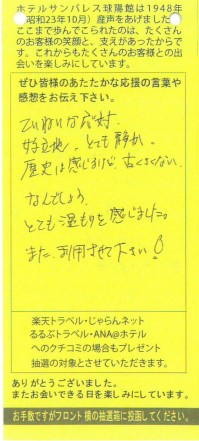 ホテルサンパレス球陽館は1948年
(昭和23年10月)産声をあげました。
ここまで歩んでこられたのは、たくさん
のお客様の笑顔と、支えがあったからで
す。これからもたくさんのお客様との出
会いを楽しみにしています。
ぜひ皆様のあたたかな応援の言葉や
感想をお伝え下さい。
ていねいな応対、
好立地。とても静か。
歴史は感じるけど、古くさくない。
なんでしょう、
とても温もりを感じました。
また、利用させて下さい!
楽天トラベル・じゃらんネット
るるぶトラベル・ANA@ホテル
へのクチコミの場合もプレゼント
抽選の対象とさせていただきます。
ありがとうございました。
またお会いできる日を楽しみにしています。
お手数ですがフロント横の抽選箱に投函してください。